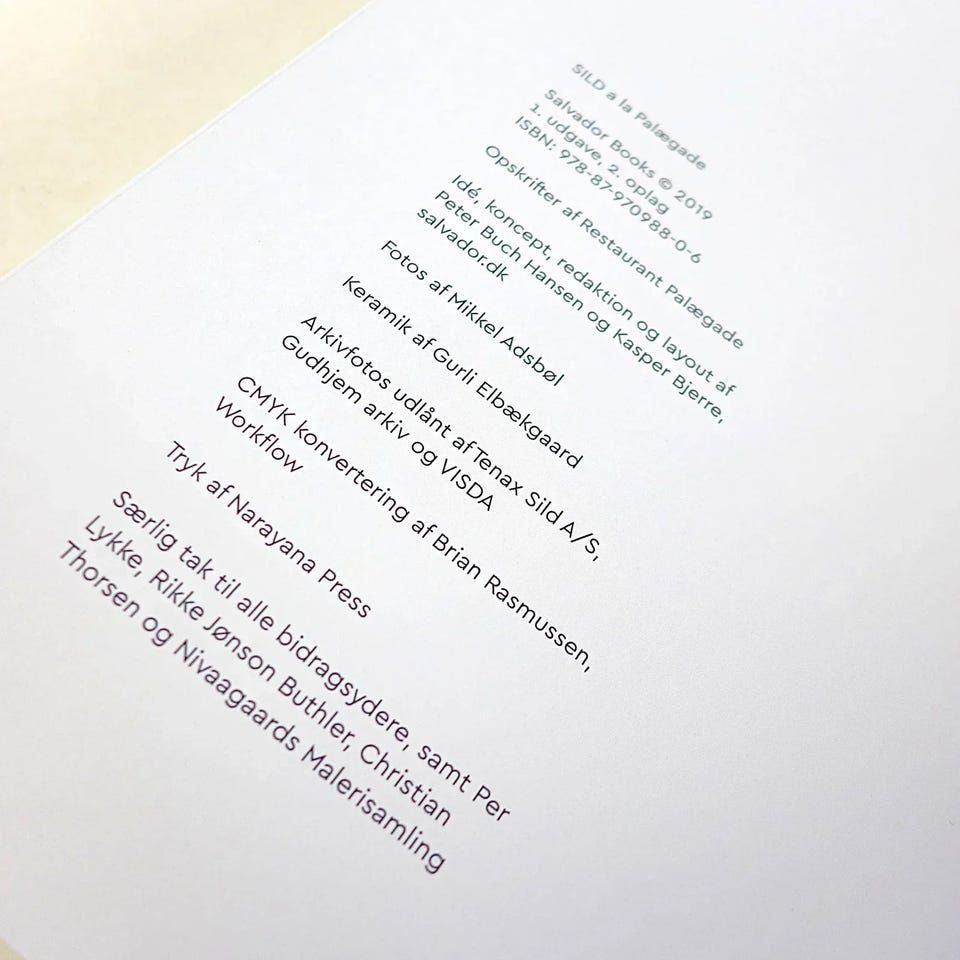 SILD a la Palægade
Salvador Books © 2019
1. udgave, 2. oplag
ISBN: 978-87-970988-0-6
Opskrifter af Restaurant Palægade
Idé, koncept, redaktion og layout af
Peter Buch Hansen og Kasper Bjerre,
salvador.dk
Fotos af Mikkel Adsbøl
Keramik af Gurli Elbækgaard
Arkivfotos udlånt af Tenax Sild A/S,
Gudhjem arkiv og VISDA
CMYK konvertering af Brian Rasmussen,
Workflow
Tryk af Narayana Press
Særlig tak til alle bidragsydere, samt Per
Lykke, Rikke Jønson Buthler, Christian
Thorsen og Nivaagaards Malerisamling